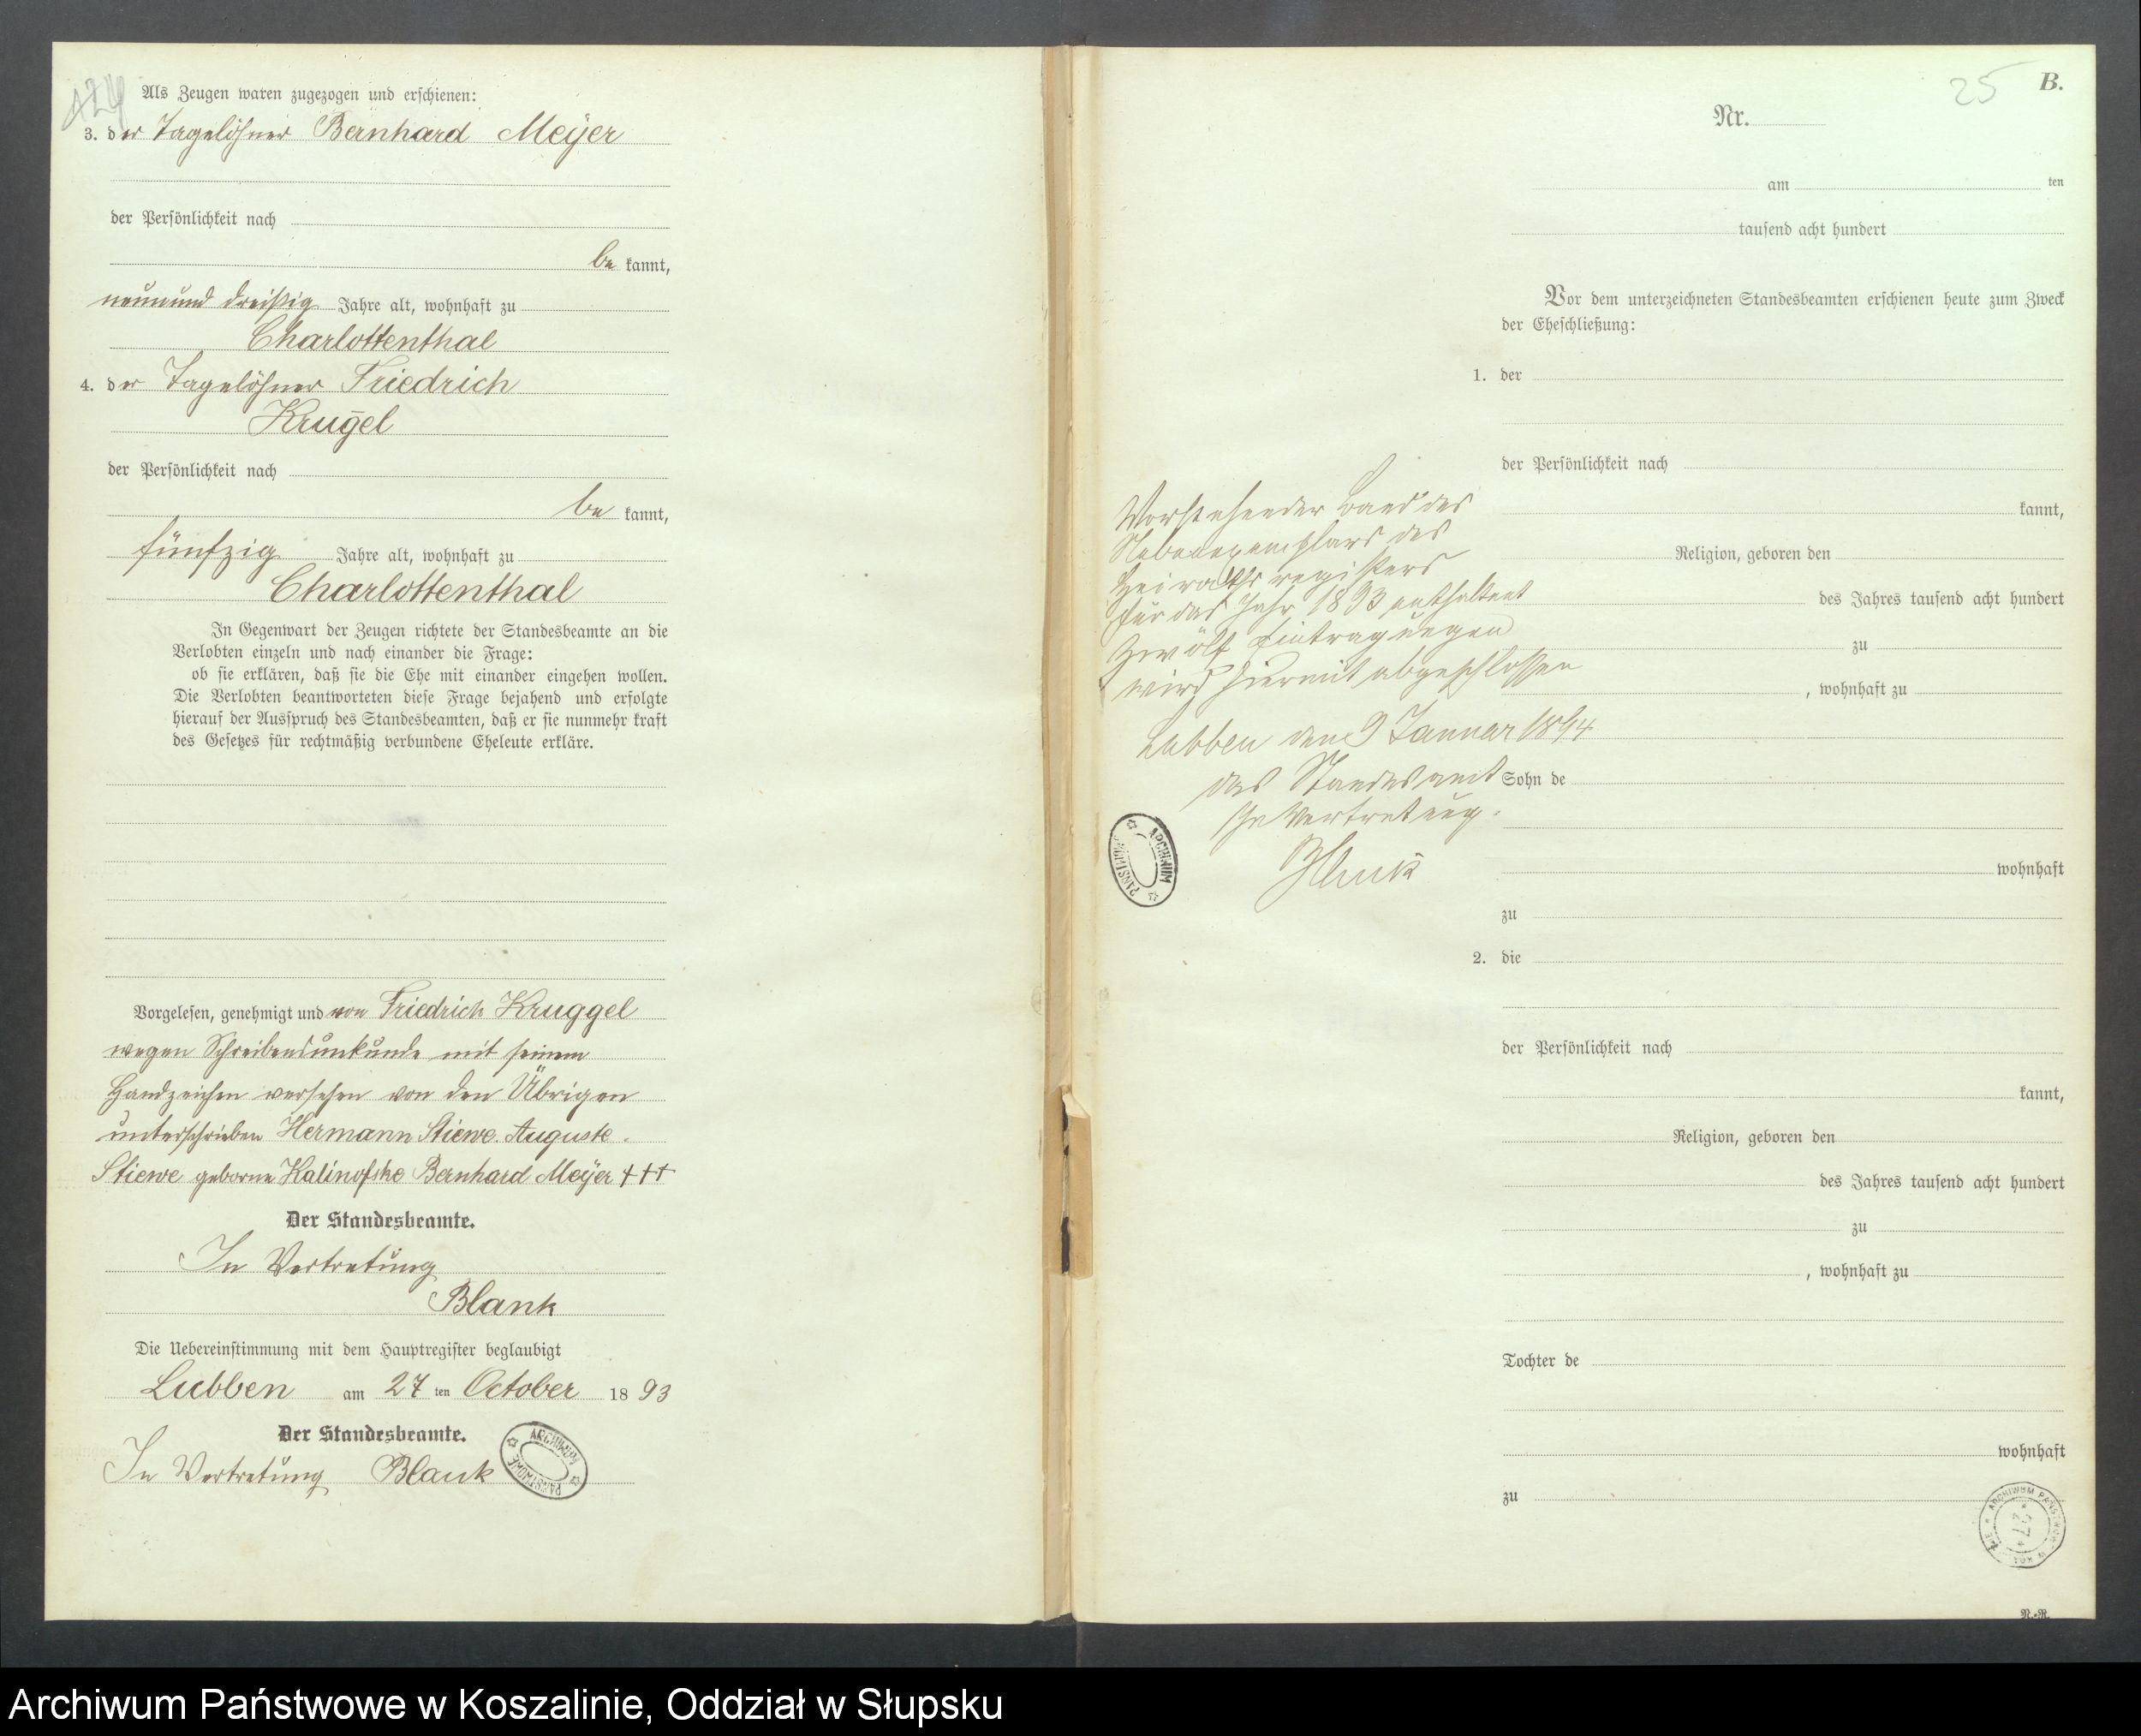 124
Als Zeugen waren zugezogen und erschienen:
3. der Tagelöhner Bernhard Meÿer
der Persönlichkeit nach
be kannt,
neunund dreißig Jahre alt, wohnhaft zu
Charlottenthal
4. der Tagelöhner Friedrich
Krugel
der Persönlichkeit nach
be kannt,
fünfzig Jahre alt, wohnhaft zu
Charlottenthal
In Gegenwart der Zeugen richtete der Standesbeamte an die
Verlobten einzeln und nach einander die Frage:
ob sie erklären, daß sie die Ehe mit einander eingehen wollen.
Die Verlobten beantworteten diese Frage bejahend und erfolgte
hierauf der Ausspruch des Standesbeamten, daß er sie nunmehr kraft
des Gesetzes für rechtmäßig verbundene Eheleute erkläre.
Vorgelesen, genehmigt und von Friedrich Kruggel
wegen Schreibensunkunde mit seinem
Handzeichen versehen von den Übrigen
unterschrieben Hermann Stiewe. Auguste
Stiewe geborne Kalinofske Bernhard Meÿer +++
Der Standesbeamte.
In Vertretung
Blank
Die Uebereinstimmung mit dem Hauptregister beglaubigt
Lubben am 27 ten October 18 93
Der Standesbeamte.
In Vertretung Blank
ARCHIWUM PAŃSTWOWE
25
B.
Nr.
am ten
tausend acht hundert
Vor dem unterzeichneten Standesbeamten erschienen heute zum Zweck
der Eheschließung:
1. der
der Persönlichkeit nach
kannt,
Religion, geboren den
des Jahres tausend acht hundert
zu
, wohnhaft zu
Sohn de
wohnhaft
zu
2. die
der Persönlichkeit nach
kannt,
Religion, geboren den
des Jahres tausend acht hundert
zu
, wohnhaft zu
Tochter de
wohnhaft
zu
Vorstehender Band des
Nebenexemplars des
Heirathsregisters
für das Jahr 1893 enthaltend
zwölf Eintragungen
wird hiermit abgeschlossen
Lubben den 9 Januar 1894
das Standesamt
In Vertretung.
Blank
ARCHIWUM PAŃSTWOWE
ARCHIWUM PAŃSTWOWE W
27
N.-R.
Archiwum Państwowe w Koszalinie, Oddział w Słupsku